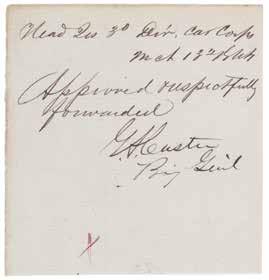 Head Qrs 3d Div. Cav Corps
Mch 13th
Approved respectfully
forwarded
G A Custer
Brig Genl